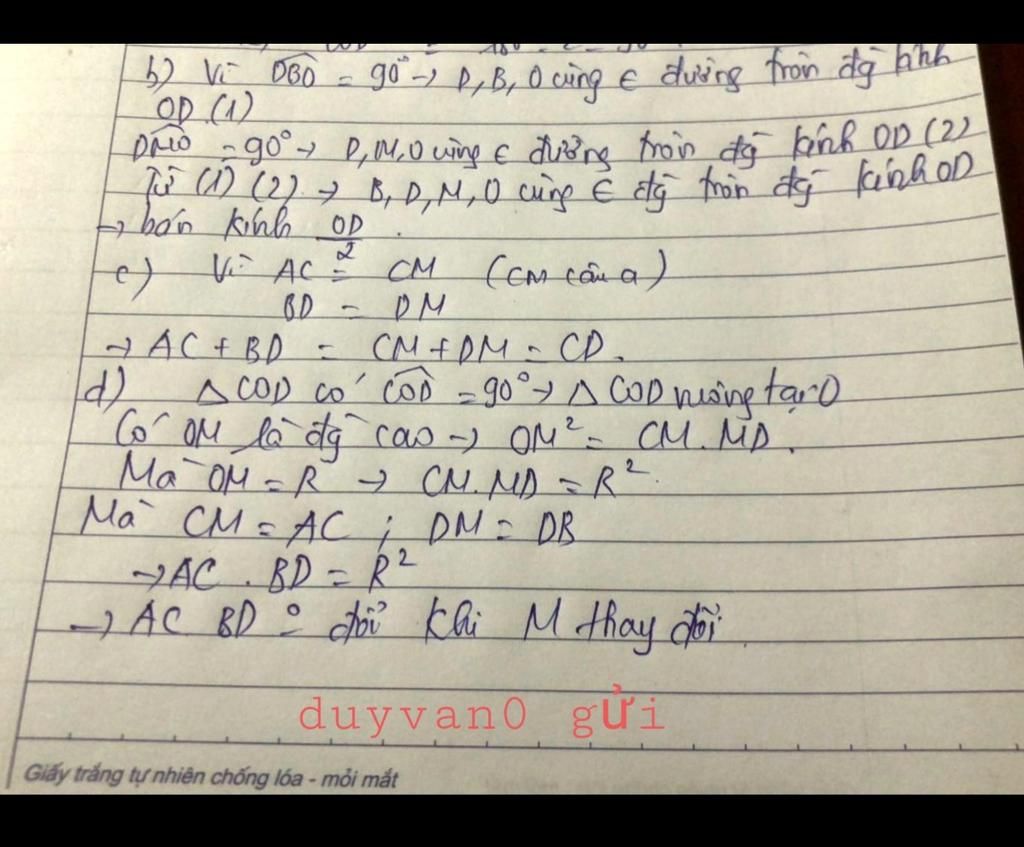 b) Vì DBO = 90° → D, B, O cùng ∈ đường tròn đg kính
OD (1)
DMO = 90° → D, M, O cùng ∈ đường tròn đg kính OD (2)
Từ (1) (2) → B, D, M, O cùng ∈ đg tròn đg kính OD
→ bán kính OD/2.
c) Vì AC = CM (CM câu a)
BD = DM
→ AC + BD = CM + DM = CD.
d) △COD có COD = 90° → △COD vuông tại O
Có OM là đg cao → OM² = CM.MD.
Mà OM = R → CM.MD = R².
Mà CM = AC ; DM = DB
→ AC . BD = R²
→ AC BD đổi khi M thay đổi.
duyvan0 gửi
Giấy trắng tự nhiên chống lóa - mỏi mắt